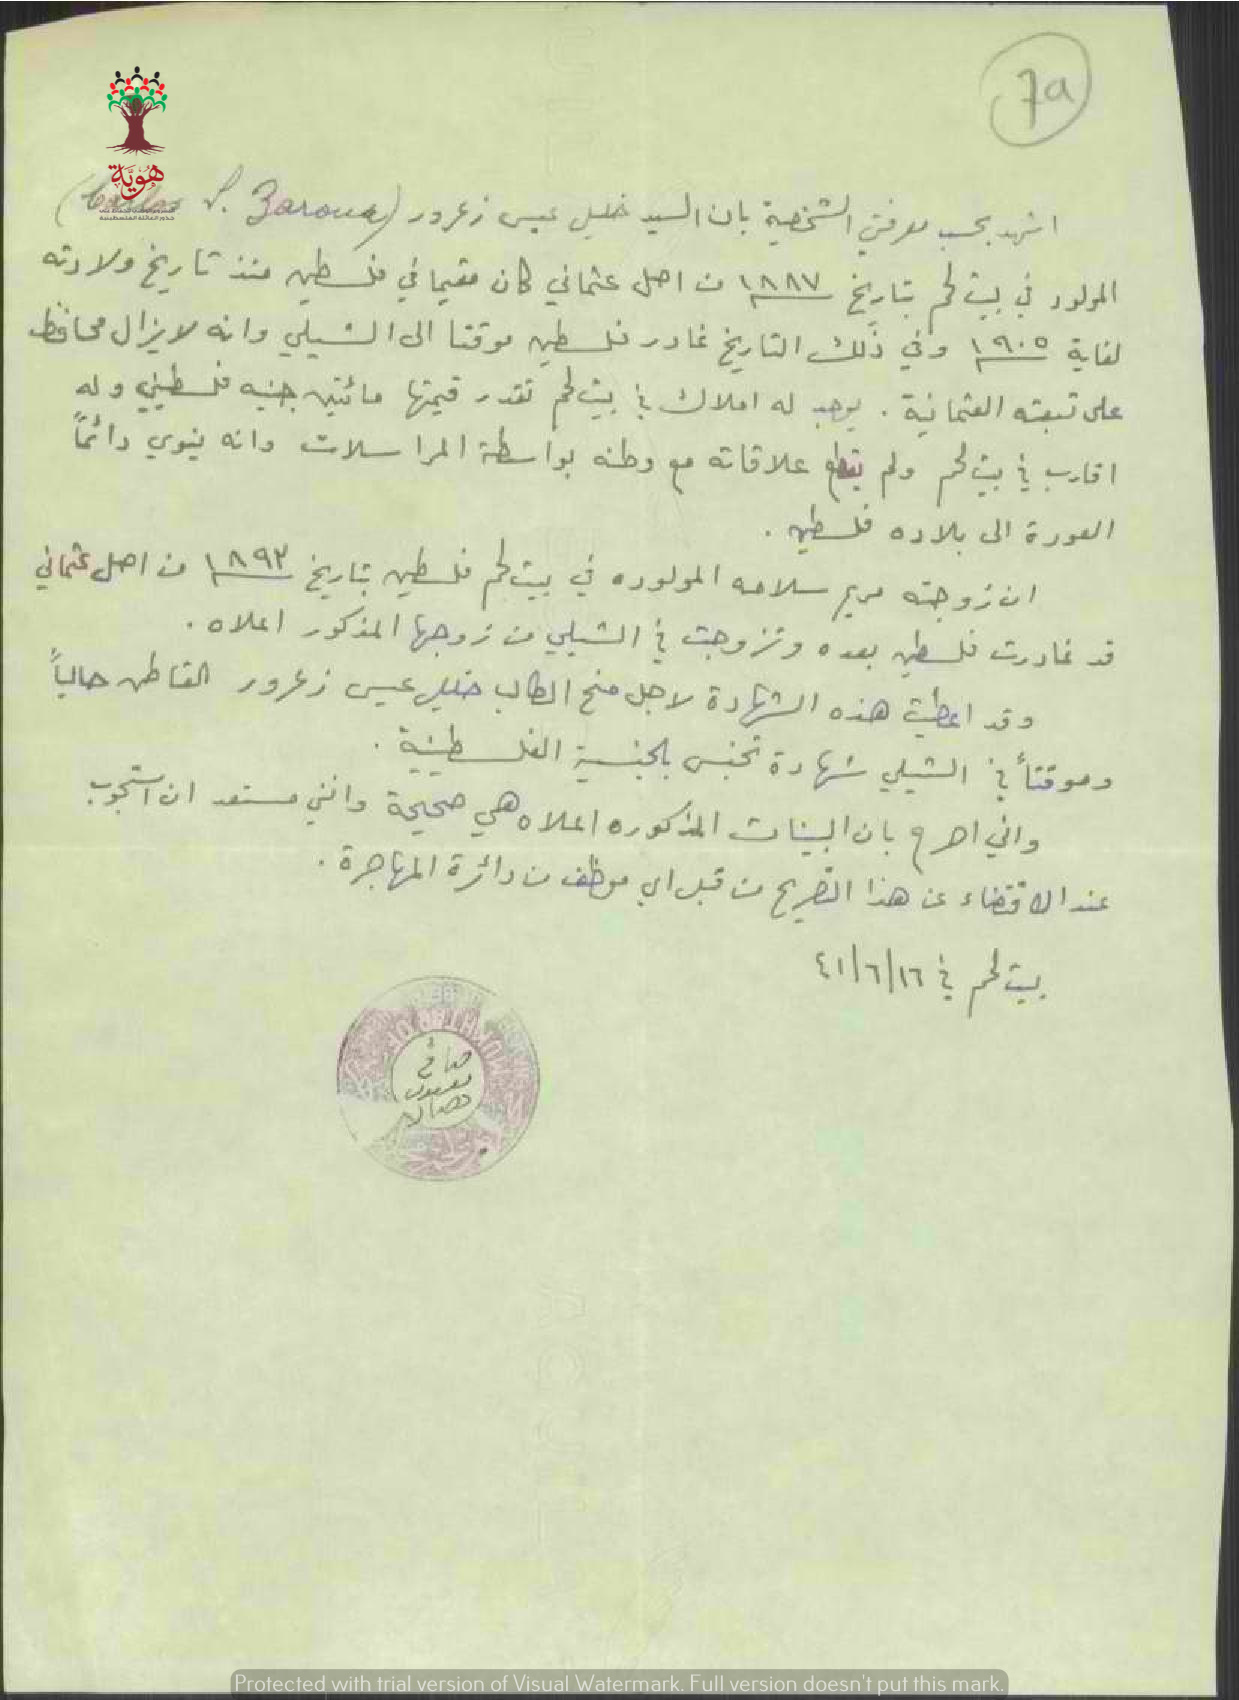 7a
هُوِيَّة
اشهد بحسب معرفتي الشخصية بان السيد خليل عيسى زعرور (Carlos S. Zaroua)
المولود في بيت لحم بتاريخ ١٨٨٧ من اصل عثماني كان مقيما في فلسطين منذ تاريخ ولادته
لغاية ١٩٠٥ وفي ذلك التاريخ غادر فلسطين موقتا الى الشيلي وانه لا يزال محافظ
على تبعته العثمانية . يوجد له املاك في بيت لحم تقدر قيمتها مائتين جنيه فلسطيني وله
اقارب في بيت لحم ولم يقطع علاقاته مع وطنه بواسطة المراسلات وانه ينوي دائماً
العودة الى بلاده فلسطين .
ان زوجته مريم سلامه المولوده في بيت لحم فلسطين بتاريخ ١٨٩٣ من اصل عثماني
قد غادرت فلسطين بعده وتزوجت في الشيلي من زوجها المذكور اعلاه .
وقد اعطيت هذه الشهادة لاجل منح الطالب خليل عيسى زعرور القاطن حالياً
وموقتاً في الشيلي شهادة تجنس بالجنسية الفلسطينية .
واني اصرح بان البينات المذكوره اعلاه هي صحيحة وانني مستعد ان استجوب
عند الاقتضاء عن هذا التصريح من قبل اي موظف من دائرة المهاجرة .
بيت لحم في ٤١/٦/١٦
MUKHTAR OF
Protected with trial version of Visual Watermark. Full version doesn't put this mark.